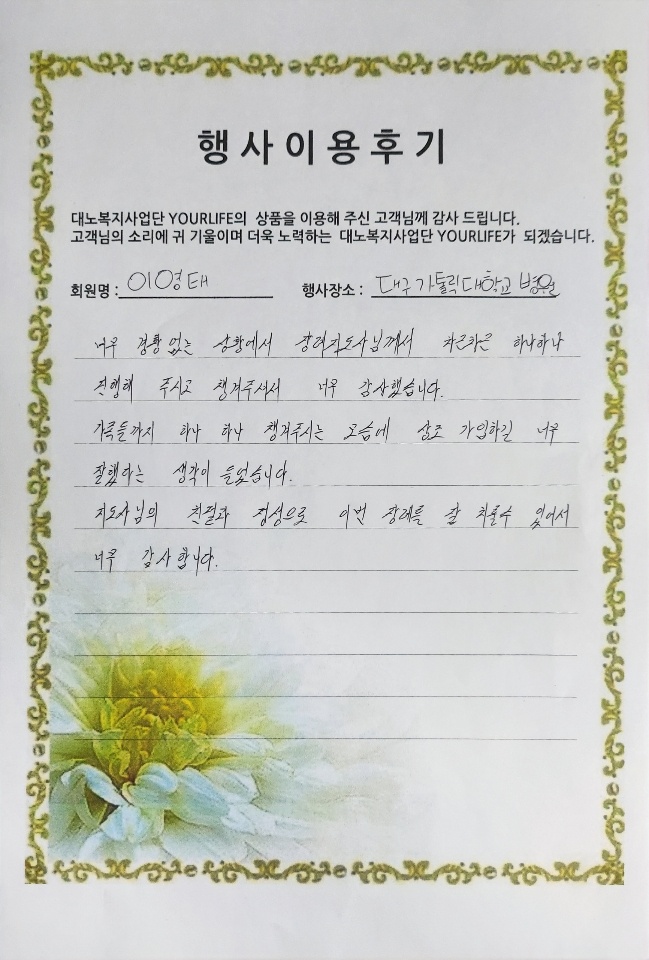 행사이용후기
대노복지사업단 YOURLIFE의 상품을 이용해 주신 고객님께 감사 드립니다.
고객님의 소리에 귀 기울이며 더욱 노력하는 대노복지사업단 YOURLIFE가 되겠습니다.
회원명 : 이영태 행사장소 : 대구가톨릭대학교병원
너무 경황 없는 상황에서 장례지도사님께서 차근차근 하나하나
진행해 주시고 챙겨주셔서 너무 감사했습니다.
가족들까지 하나 하나 챙겨주시는 모습에 상조 가입하길 너무
잘했다는 생각이 들었습니다.
지도사님의 친절과 정성으로 이번 장례를 잘 치룰수 있어서
너무 감사합니다.